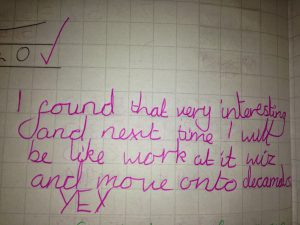 0 ✓
I found that very interesting
and next time I will
be like work at it wiz
and move onto decamals
YEX